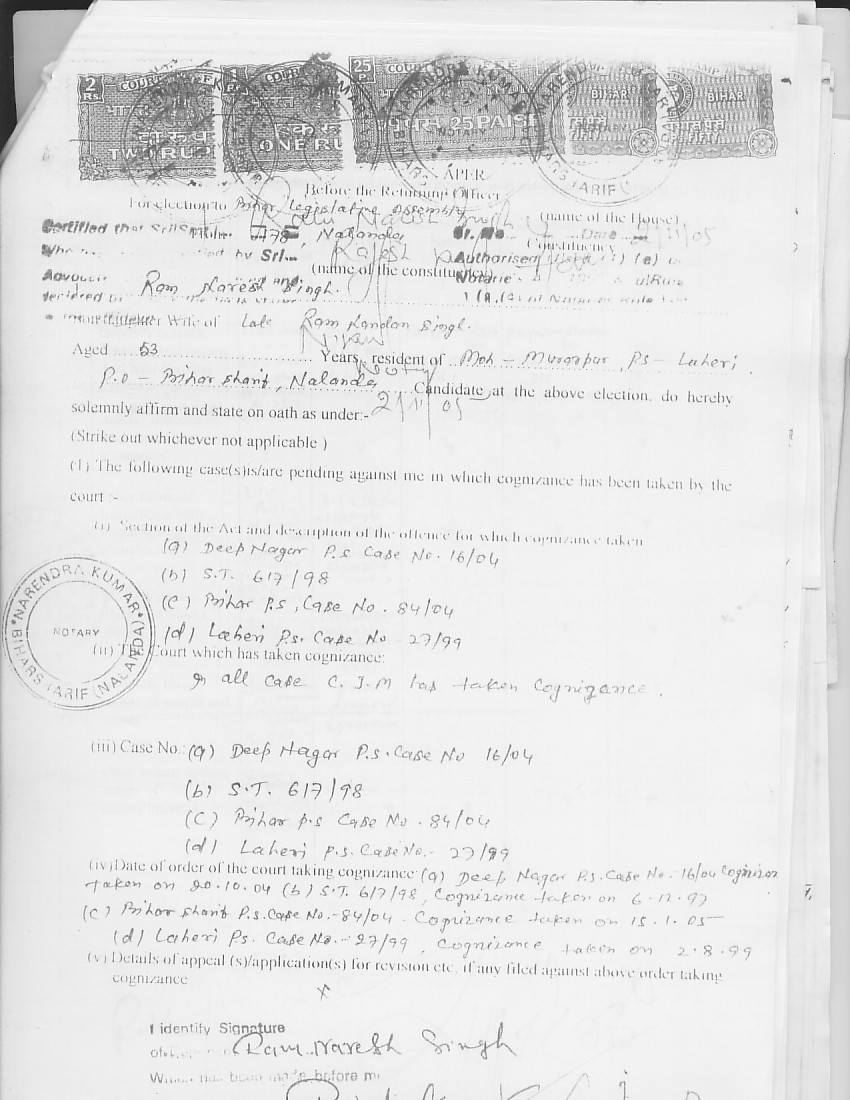 2 Rs COURT FE
TWO RU
COURT
ONE RU
25 P. COURT
25 PAIS
BIHAR
STAMP
BIHAR
NARENDRA KUMAR
NOTARY
BIHARSTARIF
APER
Before the Returning Officer
For election to Bihar Legislative Assembly (name of the House)
Certified that Sri/Smt
178, Nalanda Constituency
by Sri
(name of the constituency)
Authorised
Advocate
Ram Naresh Singh.
Wife of Late Ram Nandan Singh.
Aged 53 Years, resident of Moh - Murarpur, P.S - Laheri,
P.O - Bihar Sharif, Nalanda Candidate at the above election, do hereby
solemnly affirm and state on oath as under:-
2/11/05
(Strike out whichever not applicable )
(1) The following case(s)is/are pending against me in which cognizance has been taken by the
court :-
(i) Section of the Act and description of the offence for which cognizance taken
(a) Deep Nagar P.S Case No. 16/04
(b) S.T. 617/98
(c) Bihar P.S, Case No. 84/04
(d) Laheri P.s. Case No 27/99
NARENDRA KUMAR
NOTARY
BIHARSTARIF (NALANDA)
(ii) The Court which has taken cognizance:
In all case C.J.M has taken Cognizance.
(iii) Case No.: (a) Deep Nagar P.s. Case No 16/04
(b) S.T. 617/98
(c) Bihar P.s Case No. 84/04
(d) Laheri P.s. Case No.- 27/99
(iv)Date of order of the court taking cognizance: (a) Deep Nagar P.S. Case No.-16/04 Cognizan
taken on 20.10.04 (b) S.T. 617/98, Cognizance taken on 6.12.97
(c) Bihar Sharif P.S. Case No.-84/04 - Cognizance taken on 15.1.05
(d) Laheri Ps. Case No.-27/99, Cognizance taken on 2.8.99
(v) Details of appeal (s)/application(s) for revision etc, if any filed against above order taking
cognizance
x
I identify Signature
Ram Naresh Singh
been made before me